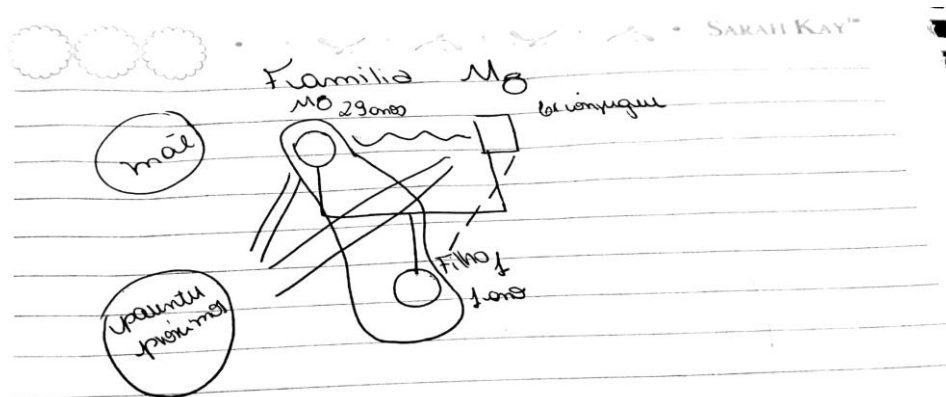 SARAH KAY™
Familia M8
M8 29 anos
Ex conjugue
mãe
Filho 1
1 ano
parentes
próximos